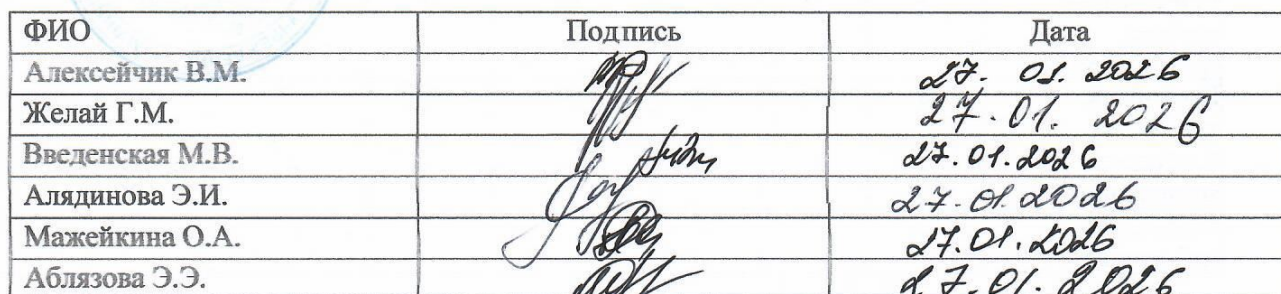 ФИО Подпись Дата
Алексейчик В.М. 27. 01. 2026
Желай Г.М. 27.01. 2026
Введенская М.В. 27.01.2026
Алядинова Э.И. 27.01.2026
Мажейкина О.А. 27.01.2026
Аблязова Э.Э. 27.01.2026